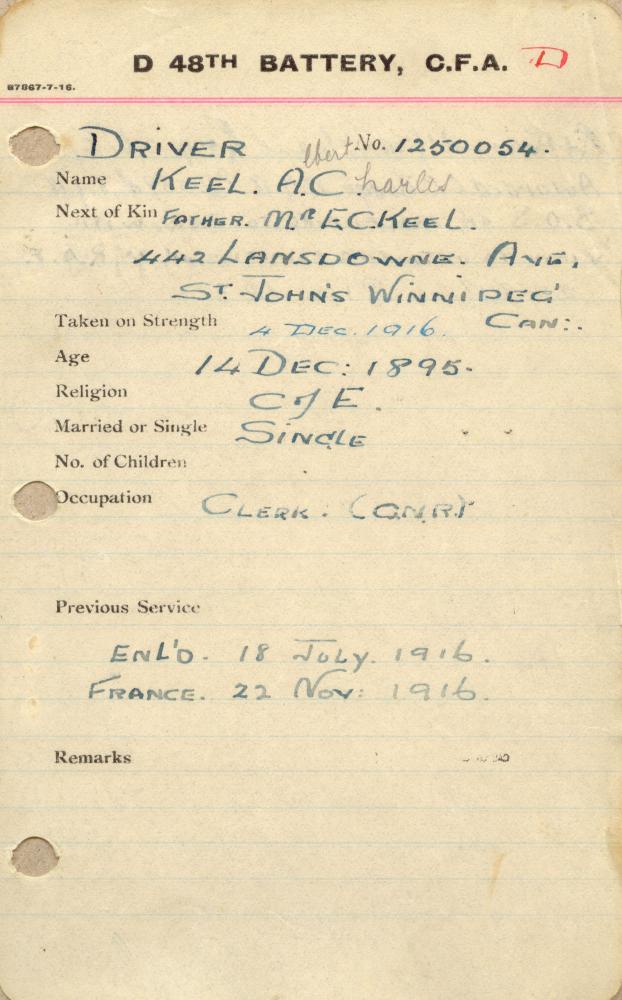 D 48TH BATTERY, C.F.A. D
87867-7-16.
DRIVER No. 1250054.
Name KEEL. A.C. lbert harles
Next of Kin FATHER. MR E.C. KEEL.
442 LANSDOWNE. AVE,
ST. JOHN'S WINNIPEG
Taken on Strength 4 DEC. 1916. CAN:.
Age 14 DEC: 1895.
Religion C of E.
Married or Single SINGLE
No. of Children
Occupation CLERK. (C.N.R.)
Previous Service
ENL'D. 18 JULY. 1916.
FRANCE. 22 NOV: 1916.
Remarks